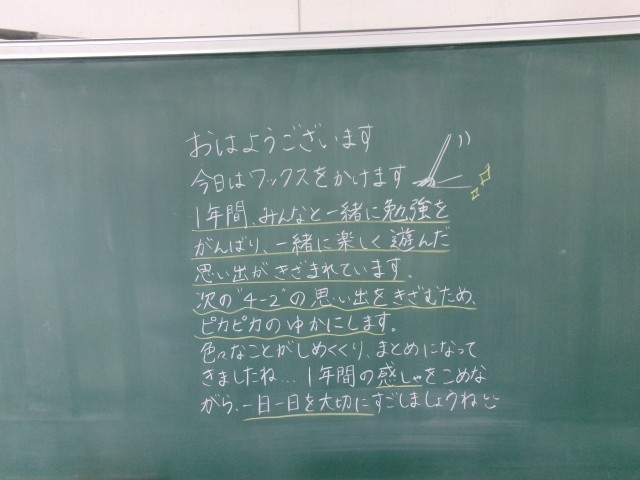 おはようございます
今日はワックスをかけます
1年間、みんなと一緒に勉強を
がんばり、一緒に楽しく遊んだ
思い出がきざまれています。
次の"4-2"の思い出をきざむため、
ピカピカのゆかにします。
色々なことがしめくくり、まとめになって
きましたね…1年間の感しゃをこめな
がら、一日一日を大切にすごしましょうね